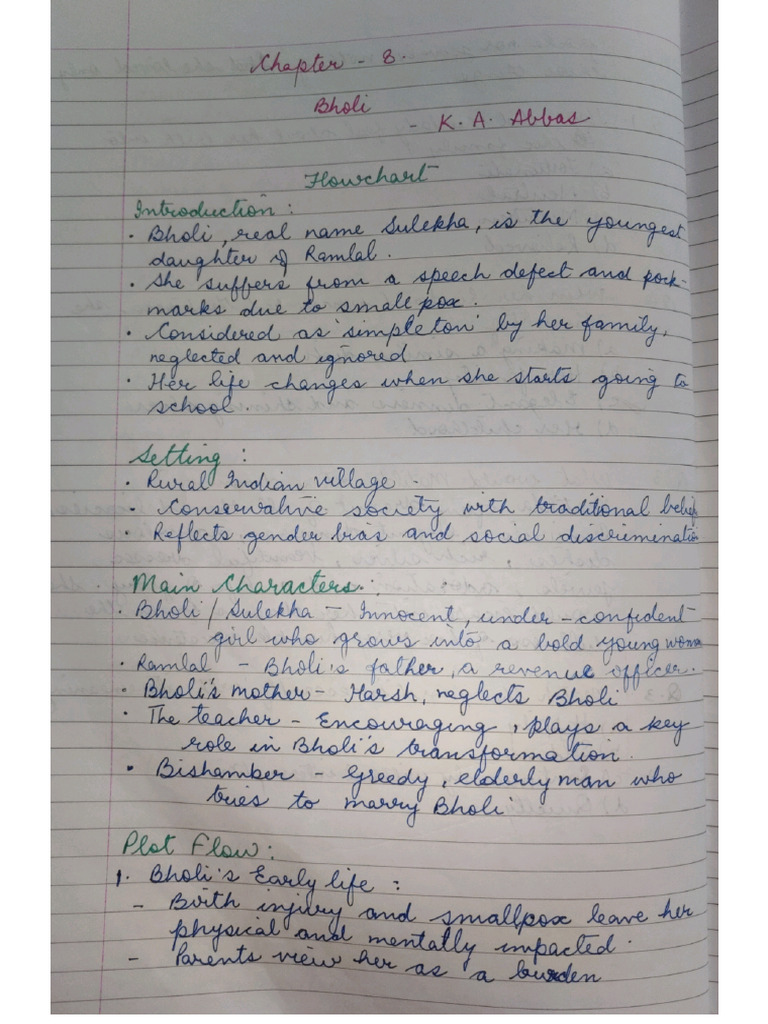 Chapter - 8.
Bholi
- K. A. Abbas
Flowchart
Introduction :
· Bholi, real name Sulekha, is the youngest
daughter of Ramlal.
· She suffers from a speech defect and pock-
marks due to small pox.
· Considered as 'simpleton' by her family,
neglected and ignored
· Her life changes when she starts going to
school.
Setting :
· Rural Indian village.
· Conservative society with traditional beliefs
· Reflects gender bias and social discrimination
Main Characters :
· Bholi / Sulekha - Innocent, under-confident
girl who grows into a bold young woman
· Ramlal - Bholi's father, a revenue officer.
· Bholi's mother - Harsh, neglects Bholi
· The teacher - Encouraging, plays a key
role in Bholi's transformation.
· Bishamber - Greedy, elderly man who
tries to marry Bholi
Plot Flow :
1. Bholi's Early life :
- Birth injury and smallpox leave her
physical and mentally impacted.
- Parents view her as a burden